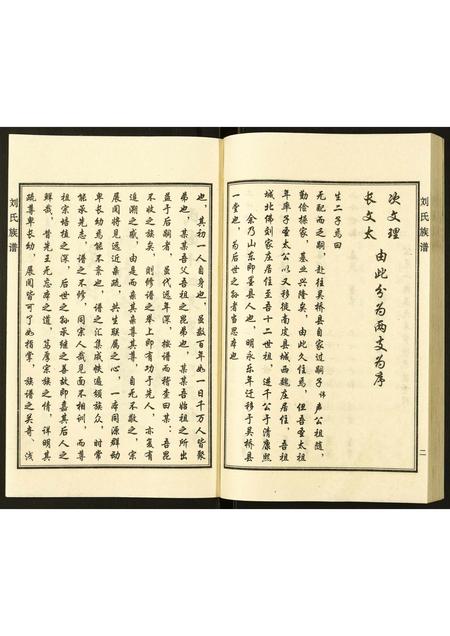 刘氏族谱
二
次文理
长文太
由此分为两支为序
生二子焉曰
无配而乏嗣，赴往吴桥县自家过嗣子讳声公祖随，
勤俭操家，基业兴隆矣，由此久住焉，但吾圣太祖
年率子圣太公以又移徙南皮县城西魏庄居住，吾祖
城北佛刘家庄居住至吾十二世祖，进千公于清康熙
余乃山东即墨县人也，明永乐年迁移于吴桥县
一堂也，为后世之孙者当思本也
也，其初一人自身也，虽数百年如一日千万人皆聚
弟也，某某吾父吾祖之昆弟也，某某吾始祖之所出
益于后嗣者，虽代远年深，按谱而稽查曰某：吾昆
不收之族矣，则修谱之举上即有功于先人，亦复有
追溯之戚，由是而亲其亲尊其尊，自无不敬之，宗
展阅将见远近亲疏，共生联属之心，一本同源群动
卑长幼焉能不紊也，谱之汇集成帙遍颁族众，时常
能承先志，谱之不修，同宗人我见面不相训，而尊
祖宗培植之深，后世之孙承继之善故即嘉其后人之
鲜哉，昔先王无忘本之道，笃厚宗族之情，详明其
疏尊卑长幼，展阅皆可了如指掌，族谱之关奇，浅
刘氏族谱